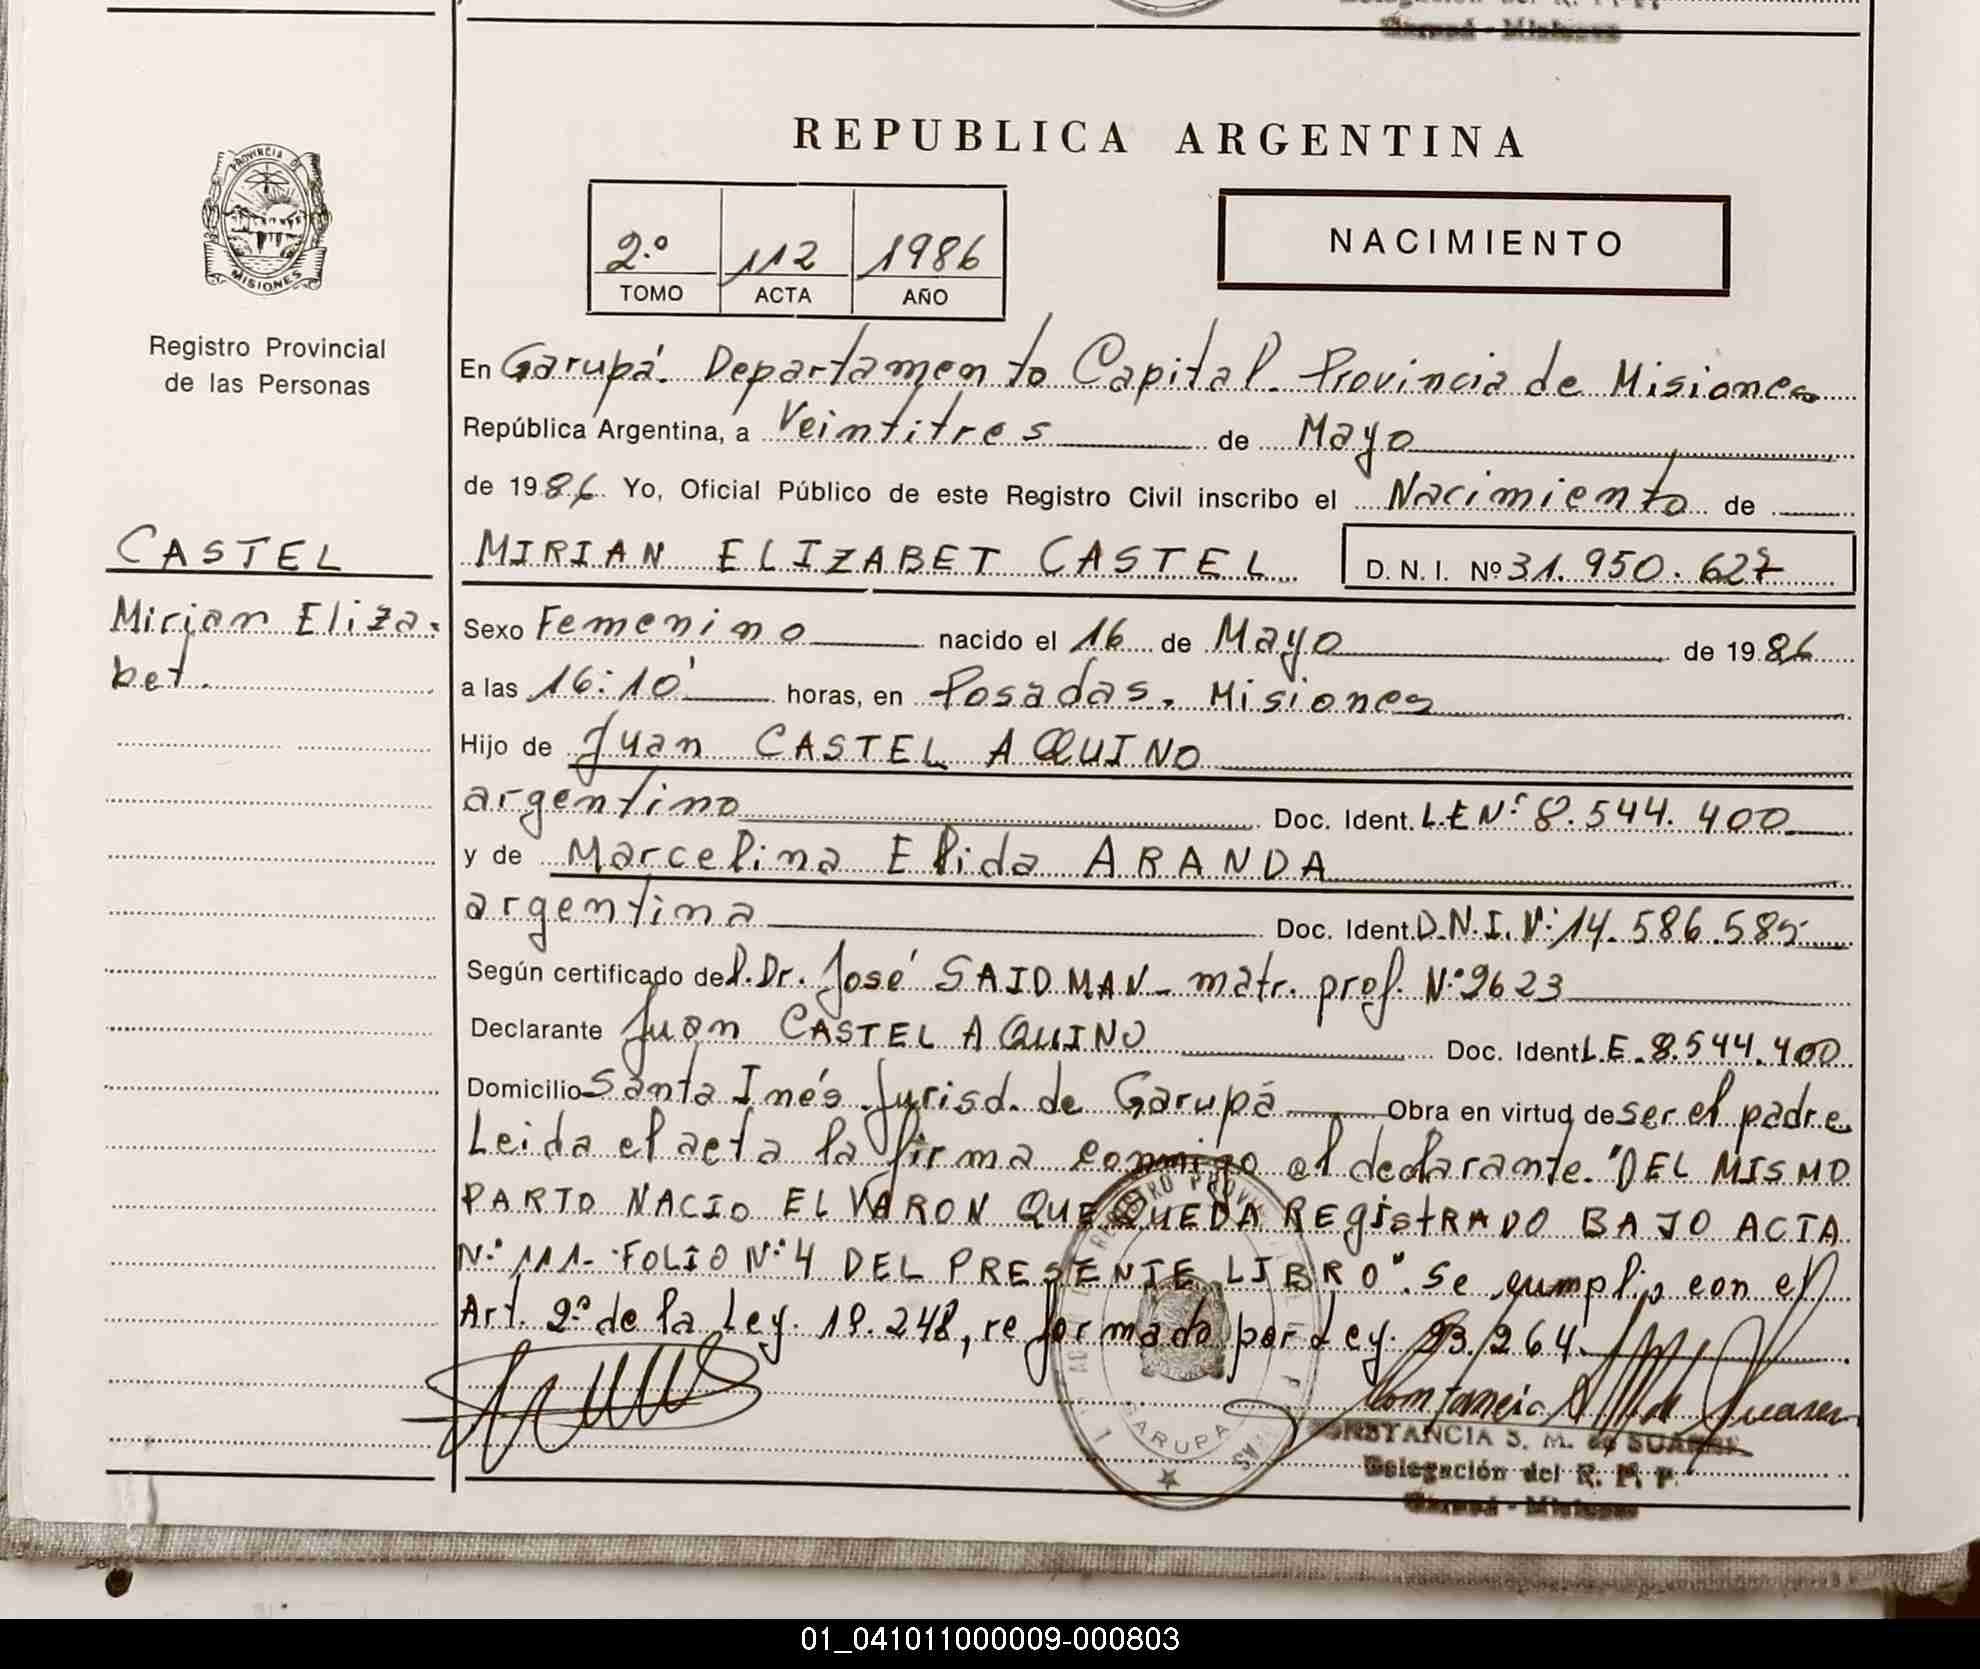 Garupá - Misiones
REPUBLICA ARGENTINA
PROVINCIA DE
MISIONES
2º 112 1986
TOMO ACTA AÑO
NACIMIENTO
Registro Provincial
de las Personas
En Garupá. Departamento Capital. Provincia de Misiones
República Argentina, a Veintitres de Mayo
de 1986. Yo, Oficial Público de este Registro Civil inscribo el Nacimiento de
CASTEL
MIRIAN ELIZABET CASTEL D. N. I. Nº 31.950.627
Mirian Eliza-
bet.
Sexo Femenino nacido el 16 de Mayo de 1986
a las 16:10' horas, en Posadas, Misiones
Hijo de Juan CASTEL AQUINO
argentino Doc. Ident. L.E Nº 8.544.400
y de Marcelina Elida ARANDA
argentina Doc. Ident. D.N.I. Nº 14.586.585
Según certificado del Dr. José SAIDMAN - matr. prof. Nº 2623
Declarante Juan CASTEL AQUINO Doc. Ident. L.E. 8.544.400
Domicilio Santa Inés Jurisd. de Garupá Obra en virtud de ser el padre.
Leida el acta la firma conmigo el declarante. "DEL MISMO
PARTO NACIO EL VARON QUE QUEDA REgistRADO BAJO ACTA
Nº 111 - FOLIO Nº 4 DEL PRESENTE LIBRO". Se cumplio con el
Art. 2º de la Ley. 18.248, reformado por Ley. 23.264.
Constancia S. M. de Suarez
CONSTANCIA S. M. de SUAREZ
Delegación del R. P. P.
Garupá - Misiones
GARUPA
01_041011000009-000803